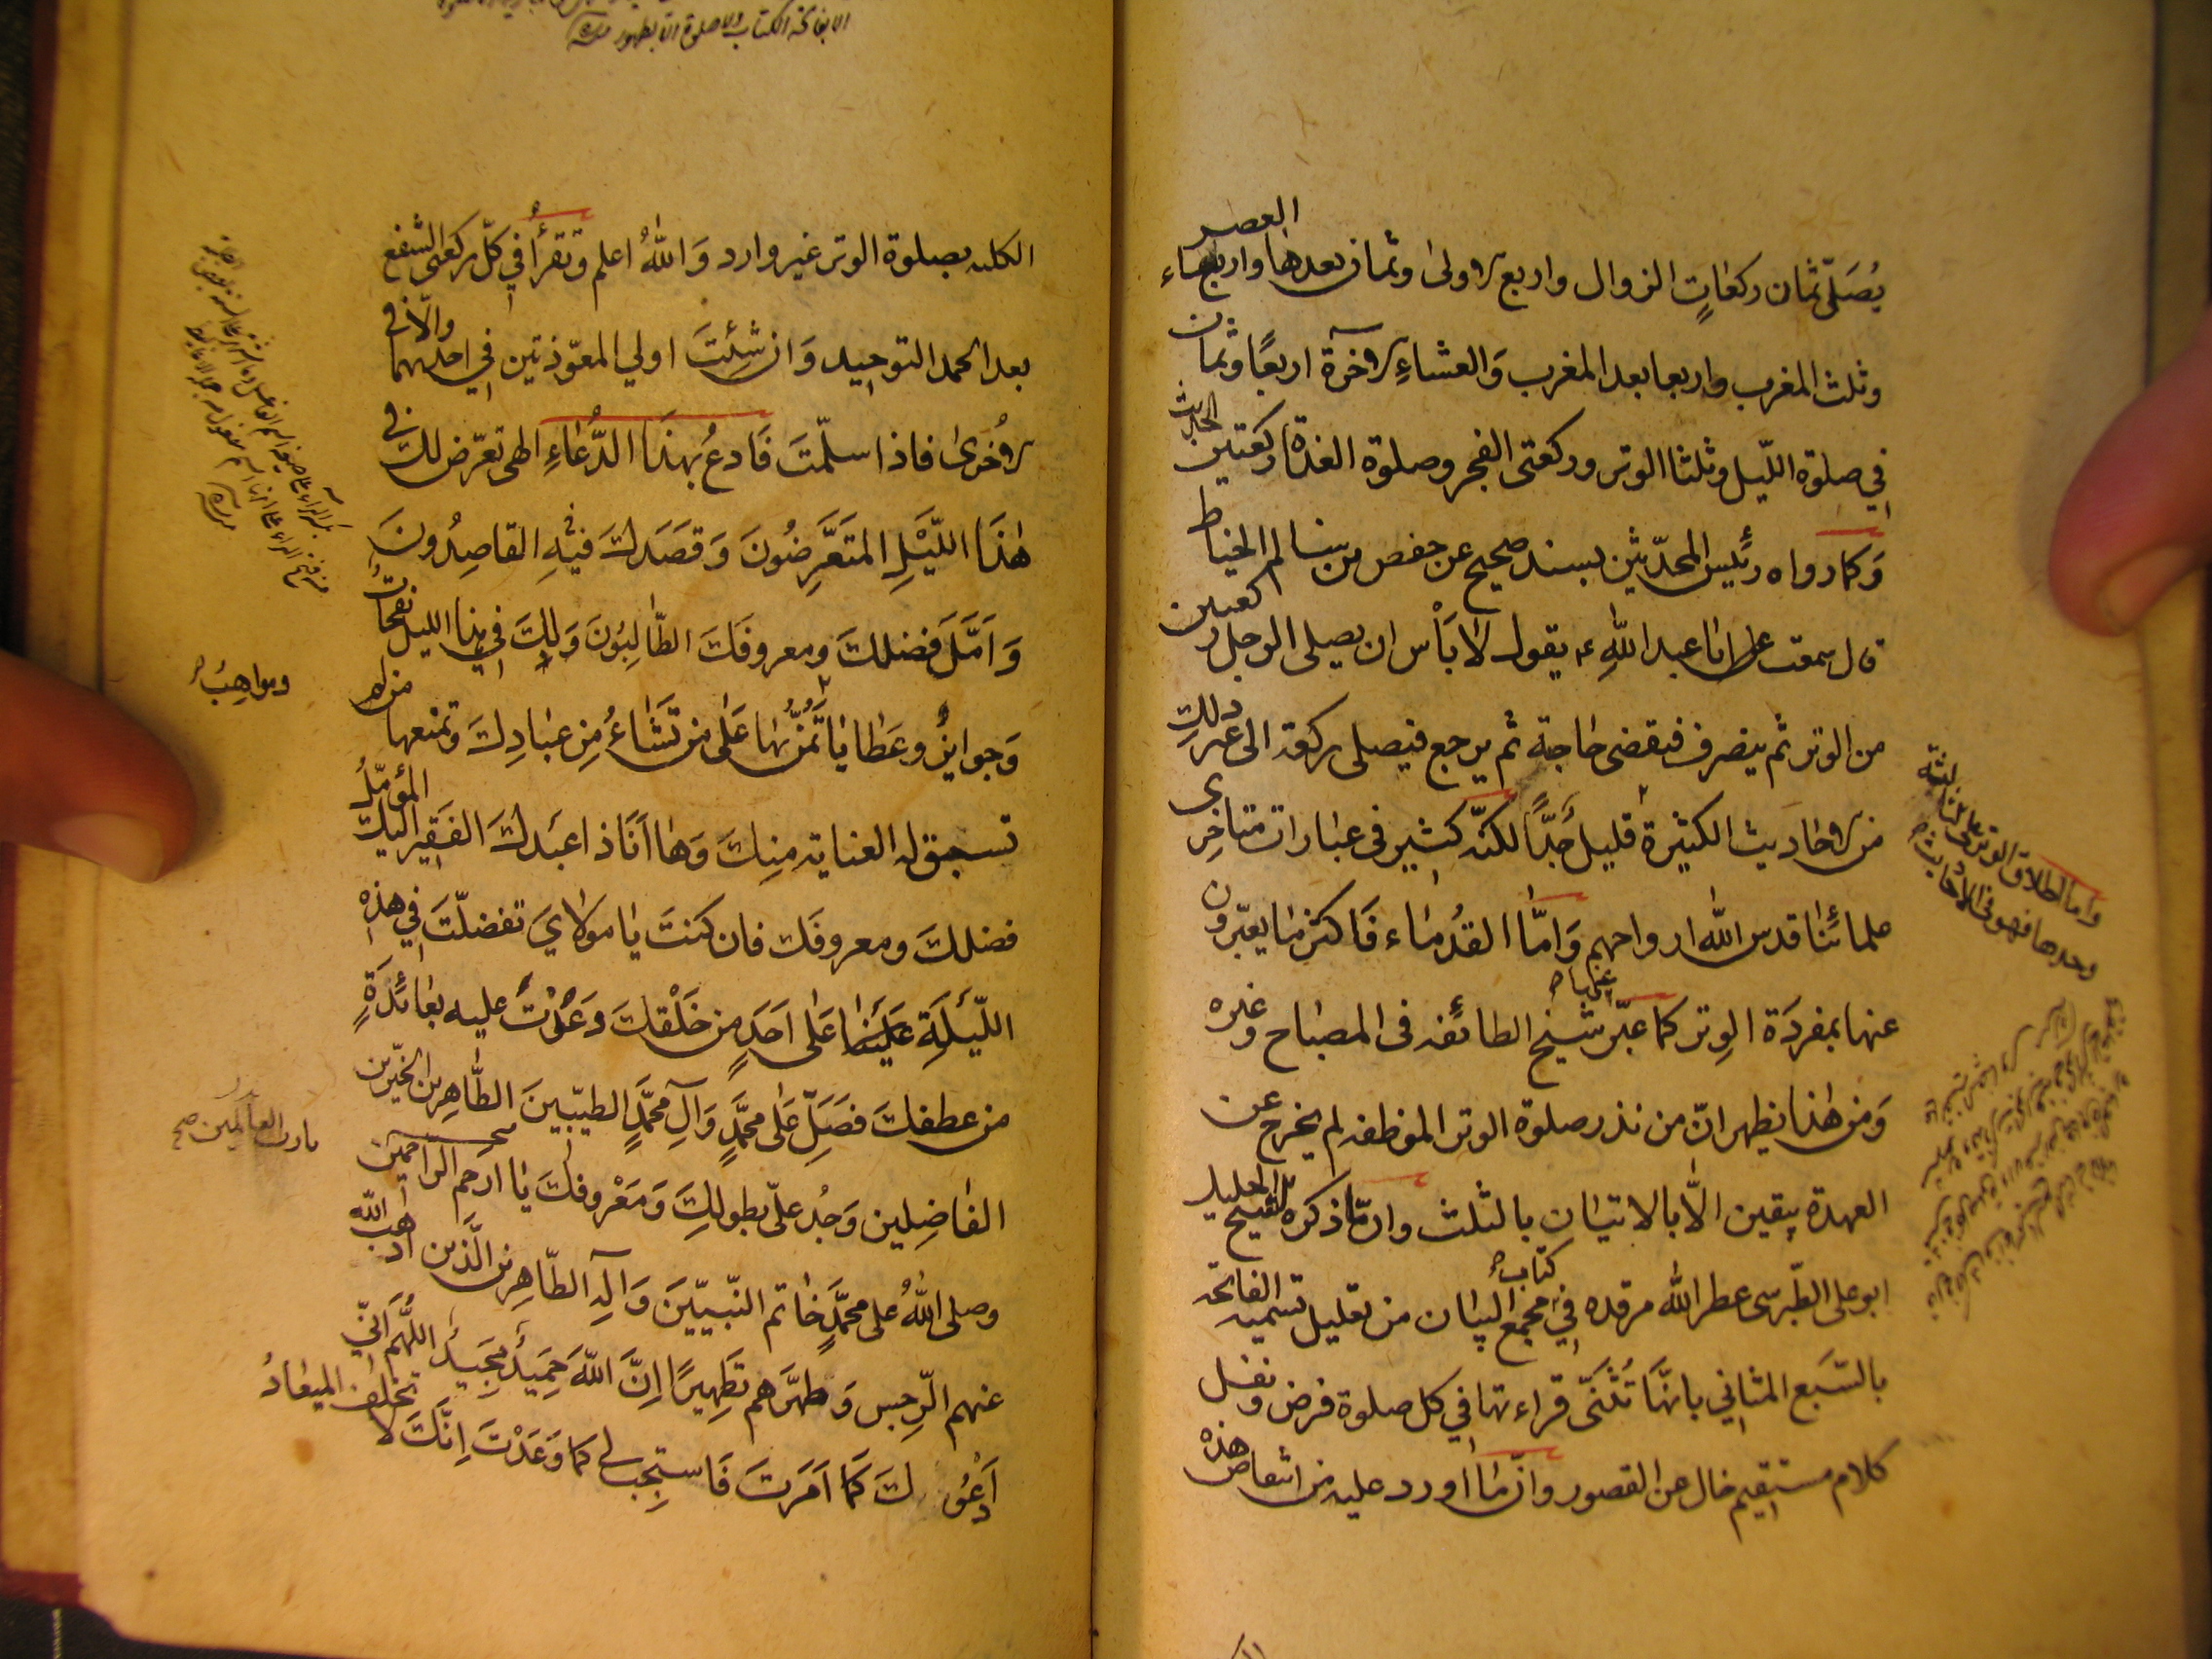 يُصَلّي ثمان ركعاتٍ الزوال واربع الاولىٰ وثمان بعدها واربع العصر
وثلث المغرب واربعا بعد المغرب وَالعشاءِ الآخرة اربعًا وثمان
في صلوة اللّيل وثلثا الوتر وركعتى الفجر وصلوة الغداة ركعتين الحديث
وَكما رواه رئيس المحدّثين بسند صحيح عن حفص بن سالم الحنياط
قال سمعت ابا عبد اللّهِ ع يقول لاٰ بَأْس ان يصلى الرجل ركعتين
من الوتر ثم ينصرف فيقضى حاجة ثم يرجع فيصلى ركعة الى غير ذلك
من الاحاديث الكثيرة قليل جدًّا لكنّه كثير فى عبارات متاخرى
علمائنا قدس اللّه ارواحهم وَامّا القُدماء فَاكثر ما يعبّرون
عنها بمفردَة الوِتر كما عبّر عنها شيخ الطائفه فى المصباح وغيره
وَمن هٰذا يظهر انّ من نذر صلوة الوتر الموظفه لم يخرج عن
العهدة بيقين الّا بالاتيان بالثلث وانّ ما ذكره الشيخ الجليل
ابو على الطّبرسى عطر اللّه مرقده في كتاب مجمع البيان من تعليل تسميه الفاتحه
بالسّبع المثاني بانهّا تُثنّى قراءتها في كل صلوة فرض ونفل
كلام مستقيم خال عن القصور وانّ ما اورد عليه من انتقاض هذه
واما اطلاق الوتر على الثلثة
وحدها فهو فى الاحاديث
الا بفاتحة الكتاب ولا صلوة الّا بطهور منه
الكليه بصلوة الوتر غير وارد وَاللّهُ اعلم وتقرأ في كلّ ركعتى الشفع
بعد الحمد التوحيد وَان شِئتَ اولي المعوّذتين في احديهما والّا فى
الاُخرىٰ فاذا سلّمتَ فَادعُ بهذَا الدُّعٰاءِ الهى تعرّض لك فى
هٰذَا اللّيْلِ المتَعَرِّضُونَ وَقصَدكَ فيْهِ القاصِدُونَ
وَاَمَّلَ فضلكَ ومعروفَكَ الطّالِبُونَ وَلكَ في هذا الليل نفحات
وَجوايزُ وعَطايٰا تَمُنُّ بهٰا عَلٰى من تَشٰاءُ مِن عبٰادِكَ وتمنعها من لم
وموٰاهِبُ
تسبق له العناية مِنكَ وَهٰا اَنَا ذا عبَدكَ الفقير اليك المؤمّلُ
فضلكَ ومعروفَك فان كنتَ يٰا مولاٰيَ تفضلّتَ في هذهِ
اللّيْلَةِ عَلٰى اَحَدٍ مِن خَلْقكَ وَعُدْتَ عليه بعٰائدَةٍ
من عطفكَ فصَلِّ عَلٰى محمَّدٍ وَآلِ محمَّدٍ الطيبّينَ الطّاهِرين الخيّرين
الفٰاضِلين وَجُد علىّ بطولكَ وَمَعْروفكَ يٰا ارحم الراحمين
يا رب العالمين صح
وصلى اللّهُ على محمَّدٍ خٰاتم النّبيّينَ وَآلِه الطّاهِرين الَّذين اذهب اللّه
عنهم الرّجس وَطهّرَهم تَطهيرًا اِنَّ اللّهَ حَميدٌ مَجيدٌ اللّهُمَّ اِنّي
اَدْعُوكَ كَمٰا اَمَرتَ فَاستجِب لى كما وَعَدْتَ اِنَّكَ لاٰ تخلف الميعٰادُ